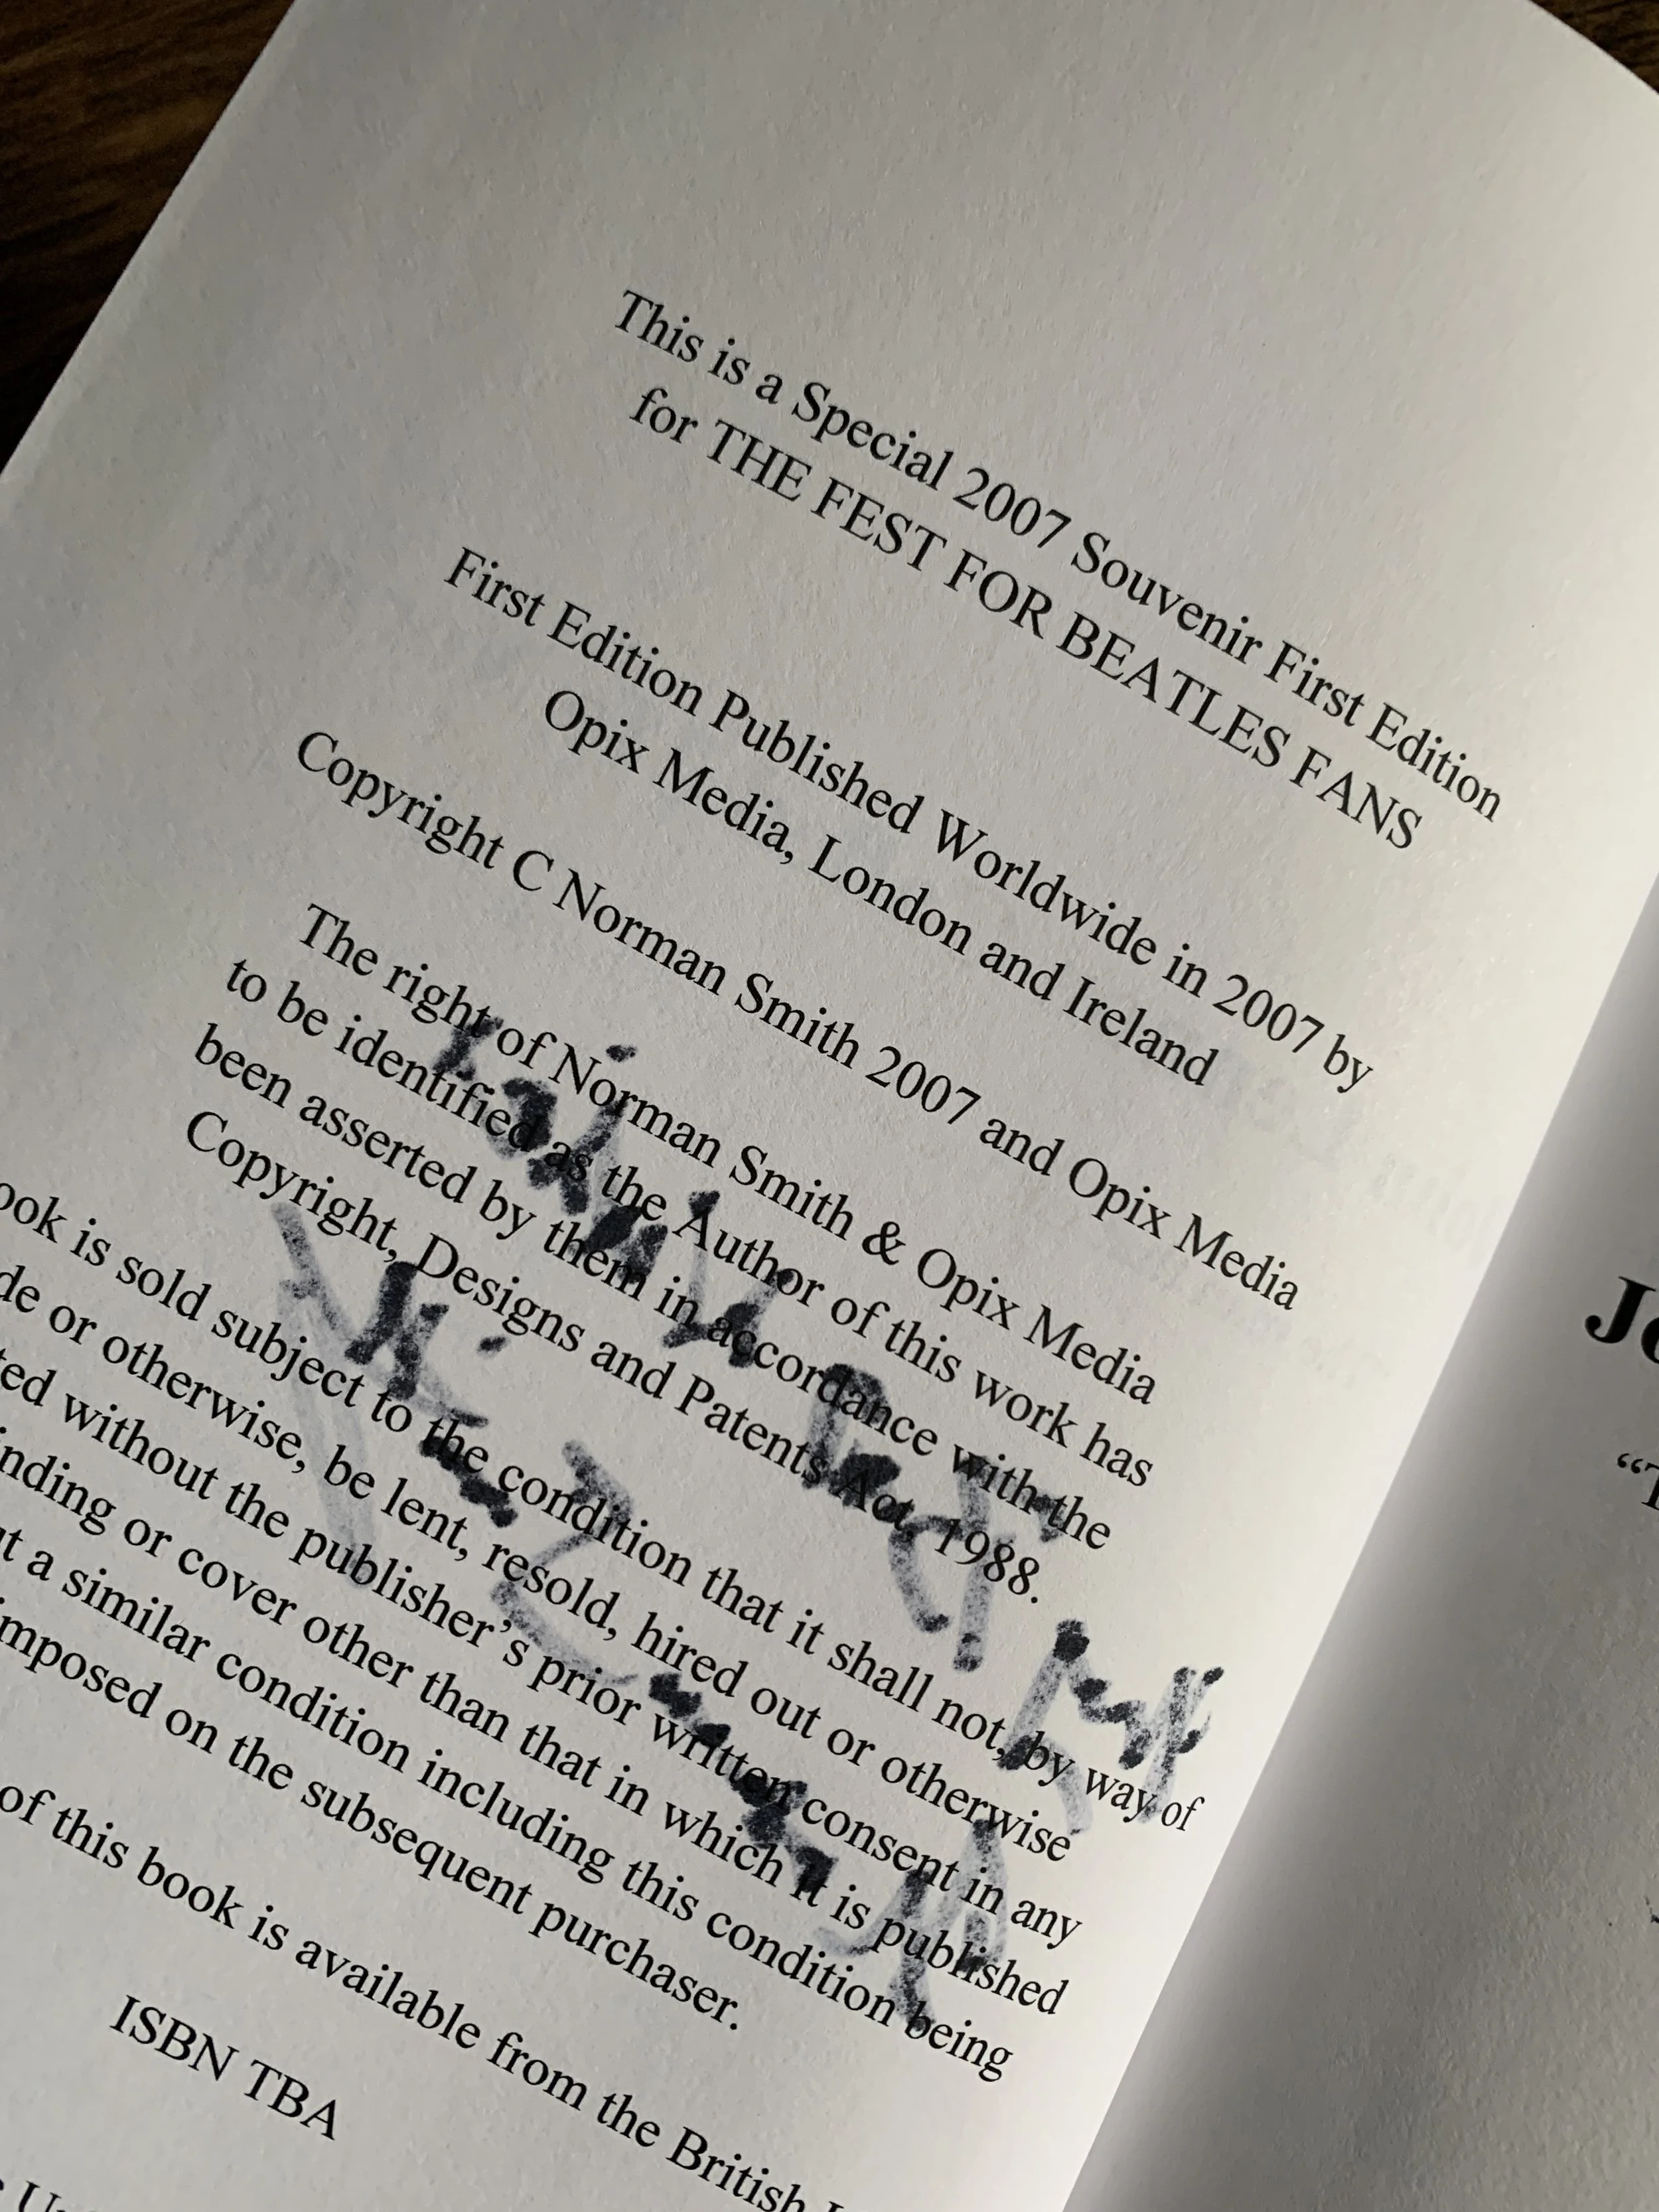 This is a Special 2007 Souvenir First Edition
for THE FEST FOR BEATLES FANS
First Edition Published Worldwide in 2007 by
Opix Media, London and Ireland
Copyright C Norman Smith 2007 and Opix Media
The right of Norman Smith & Opix Media
to be identified as the Author of this work has
been asserted by them in accordance with the
Copyright, Designs and Patents Act, 1988.
ook is sold subject to the condition that it shall not, by way of
de or otherwise, be lent, resold, hired out or otherwise
ted without the publisher's prior written consent in any
inding or cover other than that in which it is published
ut a similar condition including this condition being
imposed on the subsequent purchaser.
of this book is available from the British
ISBN TBA